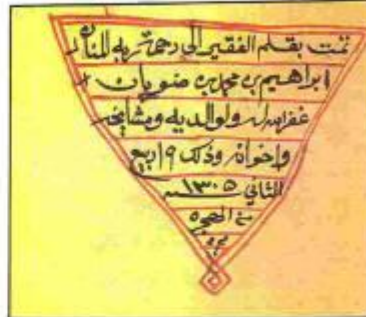 تمت بقلم الفقير الى رحمة ربه المنان
ابراهيم بن محمد بن ضويان
غفر الله له ولوالديه ومشايخه
واخوانه وذلك ١٩ ربيع
الثاني ١٣٠٥ سنه
من الهجره